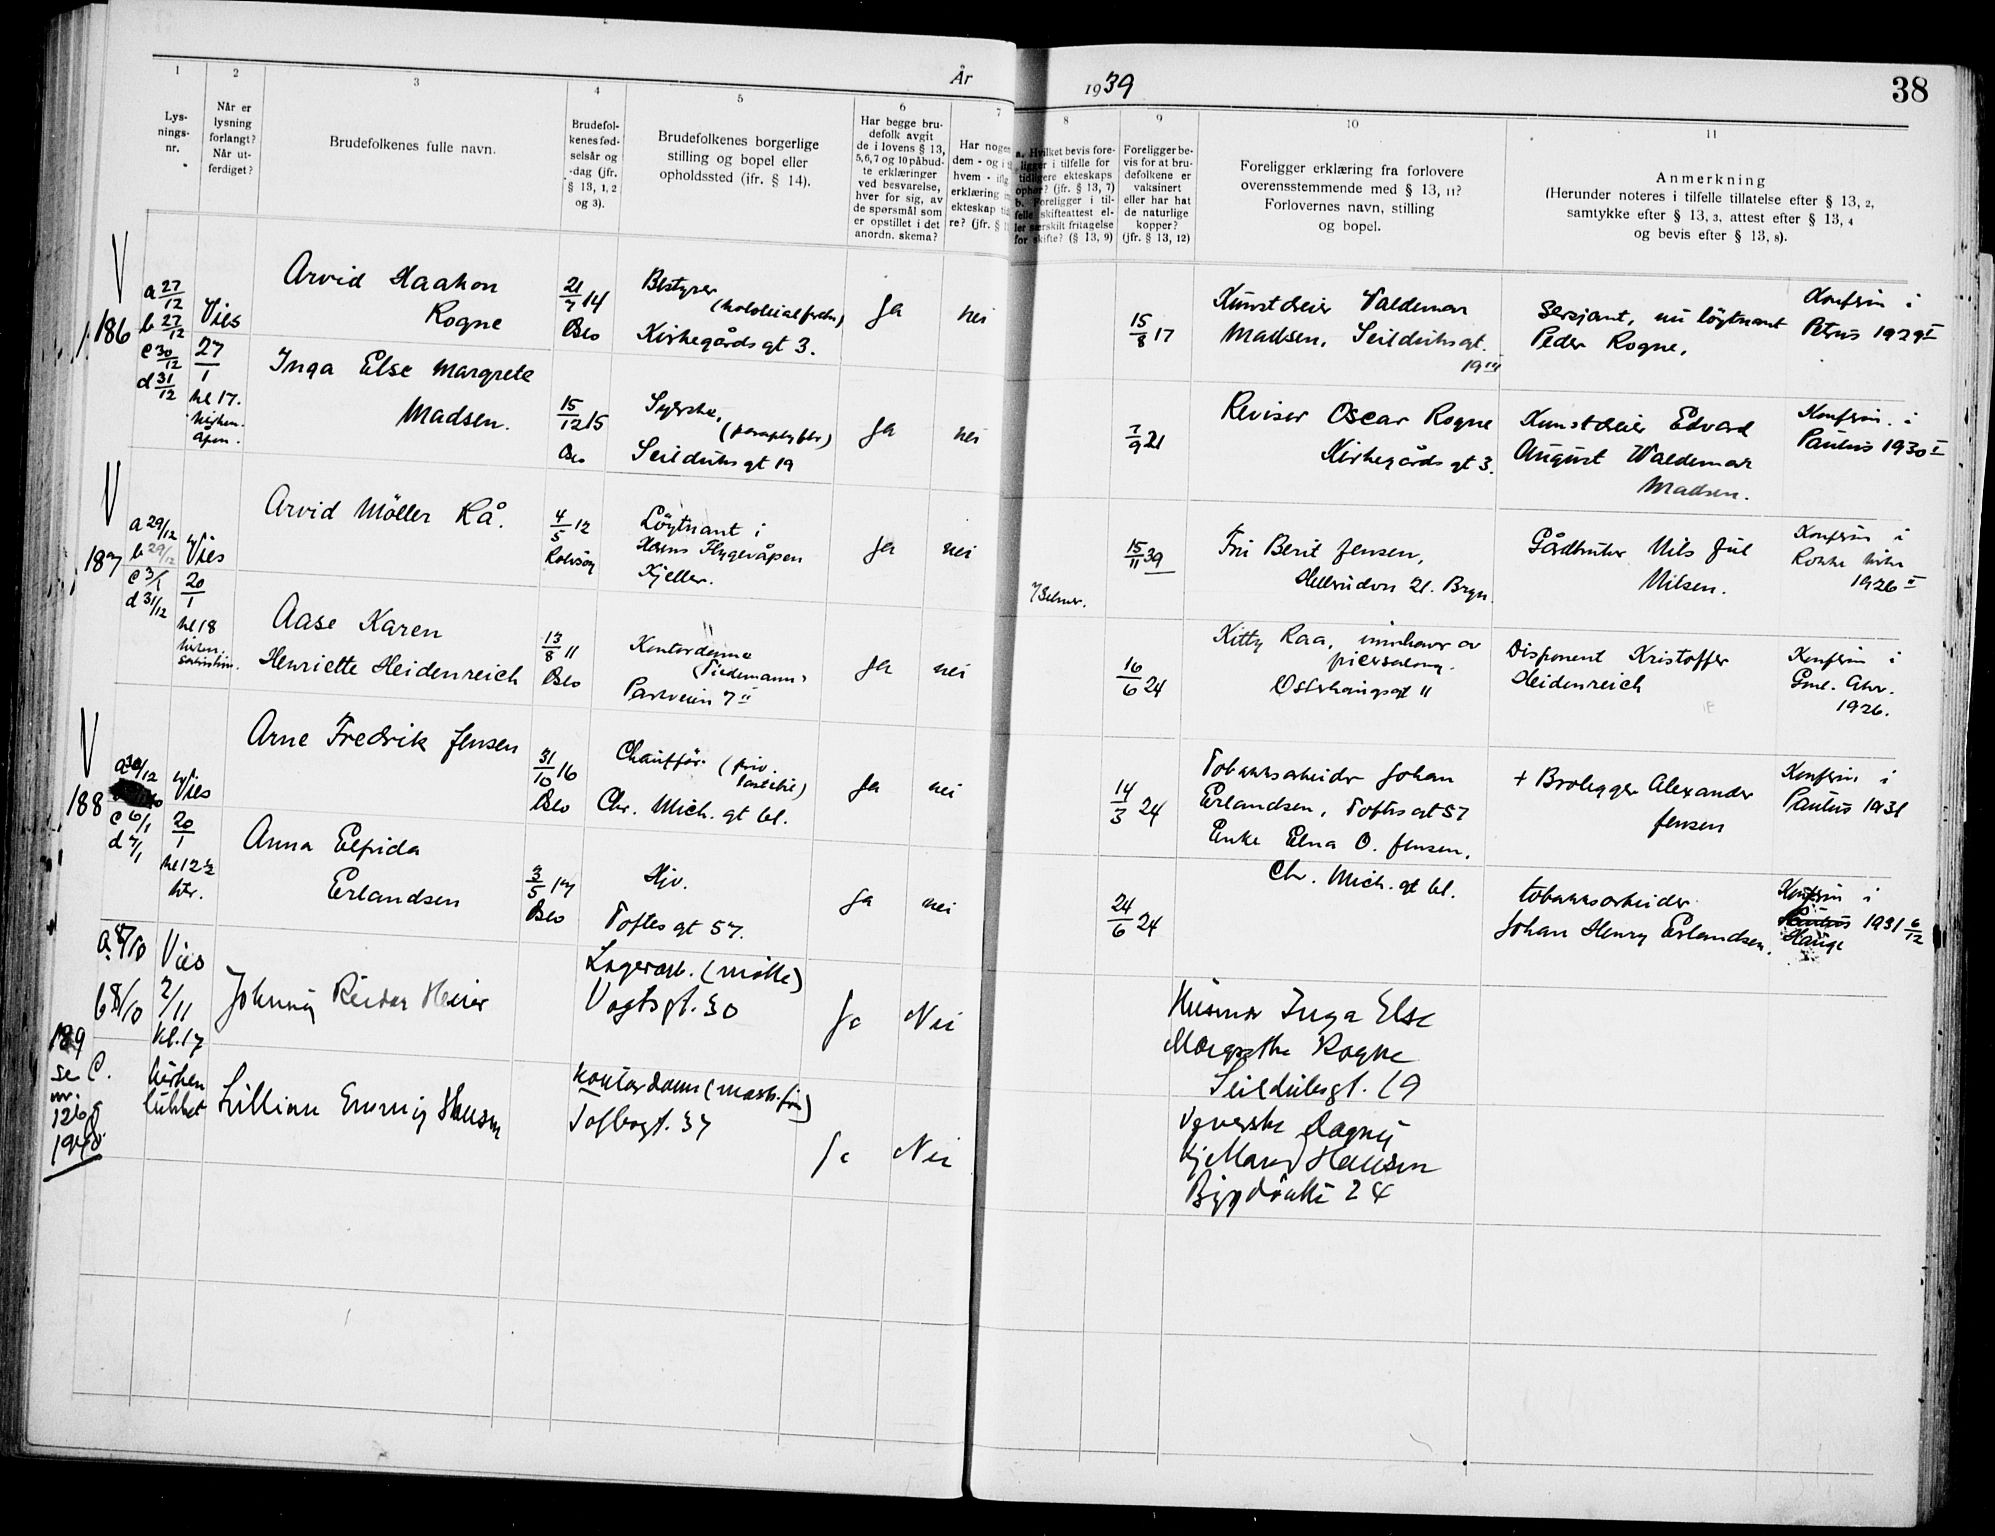 År 1939
38
1
Lys-
nings-
nr.
2
Når er
lysning
forlangt?
Når ut-
ferdiget?
3
Brudefolkenes fulle navn.
4
Brudefol-
kenes fød-
selsår og
-dag (jfr.
§ 13, 1, 2
og 3).
5
Brudefolkenes borgerlige
stilling og bopel eller
opholdssted (ifr. § 14).
6
Har begge bru-
defolk avgit
de i lovens § 13,
5,6,7 og 10 påbud-
te erklæringer
ved besvarelse,
hver for sig, av
de spørsmål som
er opstillet i det
anordn. skema?
7
Har nogen
dem - og i
hvem - ifl
erklæring
ekteskap ti
re? (jfr. §
8
a. Hvilket bevis fore-
ligger i tilfelle for
tidligere ekteskaps
ophør? (jfr. § 13, 7)
b. Foreligger i til-
felle skifteattest el-
ler særskilt fritagelse
for skifte? (§ 13, 9)
9
Foreligger be-
vis for at bru-
defolkene er
vaksinert
eller har hat
de naturlige
kopper?
(jfr. § 13, 12)
10
Foreligger erklæring fra forlovere
overensstemmende med § 13, 11?
Forlovernes navn, stilling
og bopel.
11
Anmerkning
(Herunder noteres i tilfelle tillatelse efter § 13, 2,
samtykke efter § 13, 3, attest efter § 13, 4
og bevis efter § 13, 8).
V
186
a 27/12
b 27/12
c 30/12
d 31/12
Vies
27/1
kl 17.
Arvid Haakon
Rogne
21/7 14
Oslo
Bestyrer
Kirkegårds gt 3.
Ja
nei
15/8 17
Valdemar
Madsen, Seilduksgt.
19 III
Sersjant, nu löytnant
Peder Rogne,
Konfirm i
Petrus 1929 II
Inga Else Margrete
Madsen.
15/12 15
Oslo
Syerske,
Seilduks gt 19
Ja
nei
7/9 21
Revisor Oscar Rogne
Kirkegårds gt 3.
Edvard
August Waldemar
Madsen.
Konfirm. i
Paulus 1930 I
V
187
a 29/12
b 29/12
c 3/1
d 31/12
Vies
20/1
kl 18
Arvid Möller Rå.
4/5 12
Löytnant i
Hærens Flygevåpen
Kjeller.
Ja
nei
15/11 39
Frk Berit Jensen,
21. Bryn.
Nils Jul
Nilsen.
Konfirm i
Rokke kirke
1926 II
Aase Karen
Henriette Heidenreich
13/8 11
Oslo
Kontordame
Tiedemanns
Parkveien 7 II
Ja
nei
16/6 24
Kitty Raa, innehaver av
Österhausgt 11
Disponent Kristoffer
Heidenreich
Konfirm i
Gml. Aker.
1926.
V
188
a 30/12
c 6/1
d 7/1
Vies
20/1
kl 12½
Arne Fredrik Jensen
31/10 16
Oslo
Chaufför (priv.
Chr. Mich. gt 61.
Ja
nei
14/3 24
Tobakksarbeider Johan
Erlandsen, Toftes gt 57
Enke Elna O. Jensen,
Chr. Mich. gt 61.
+ Brolegger Alexander
Jensen
Konfirm i
Paulus 1931
Anna Elfrida
Erlandsen
3/5 17
Oslo
Hjv.
Toftes gt 57.
Ja
nei
24/6 24
tobakksarbeider
Johan Henry Erlandsen.
Konfirm i
Paulus 1931 6/12
Hauge
189
se C.
nr.
126
1940
b 8/10
Vies
2/11
Kl. 17
kirken
lukket
Johnny Reidar Heier
Lagerarb. (mölle)
Vogtsgt. 30
Ja
Nei
Husmor Inga Else
Margrethe Rogne
Seilduksgt. 19
Lillian Emmy Hansen
Kontordame
Toftesgt. 37
Ja
Nei
Dagny
Hansen
Bygdöalle 24